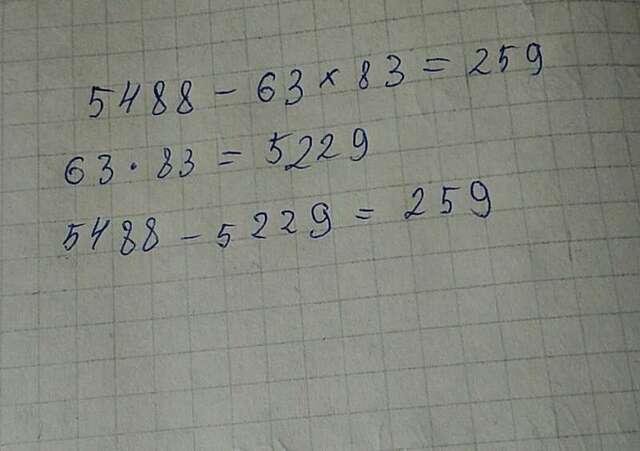 5488 - 63 × 83 = 259
63 · 83 = 5229
5488 - 5229 = 259